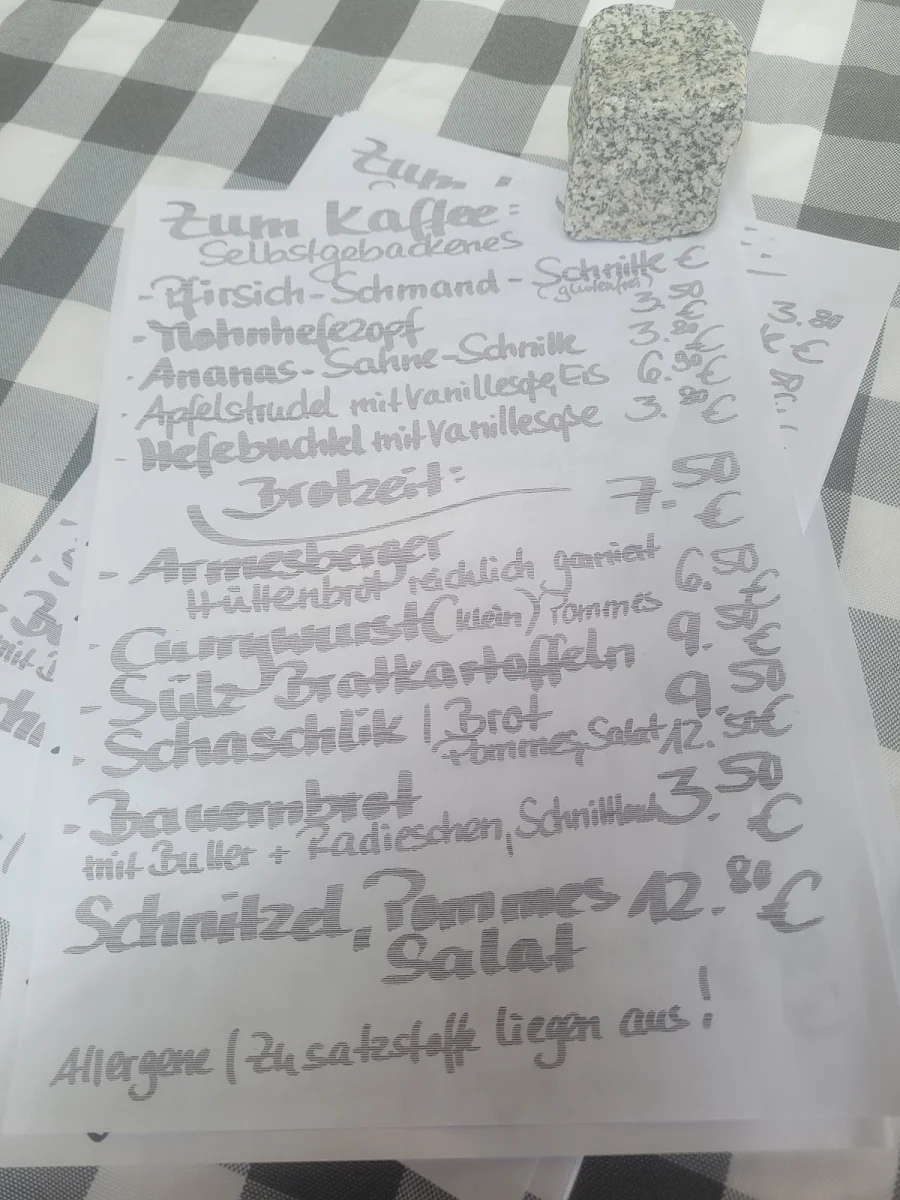 Zum Kaffee:
Selbstgebackenes
- Pfirsich-Schmand-Schnitte €
(glutenfrei)
- Mohnhefezopf 3. 50 €
- Ananas-Sahne-Schnitte 3. 80 €
- Apfelstrudel mit Vanillesoße, Eis 6. 80 €
- Hefebuchtel mit Vanillesoße 3. 80 €
Brotzeit:
- Armesberger 7. 50 €
Hüttenbrot reichlich garniert
- Currywurst (klein) Pommes 6. 50 €
- Sülz Bratkartoffeln 9. 50 €
- Schaschlik / Brot 9. 50
Pommes, Salat 12. 50 €
- Bauernbrot 3. 50 €
mit Butter + Radieschen, Schnittlauch
Schnitzel, Pommes 12. 80 €
Salat
Allergene / Zusatzstoffe liegen aus!
Zum
3. 80 €